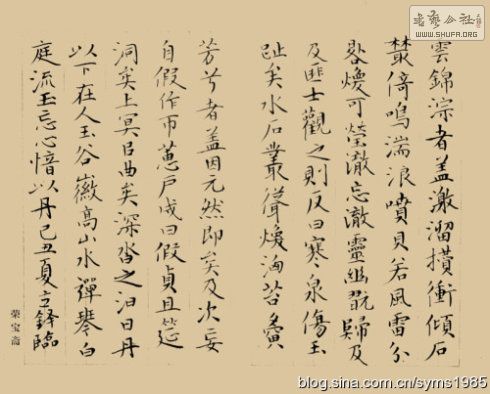 雲錦淙者蓋激溜攢衝傾石
叢倚鳴湍浪噴貝若風雷分
煥可瑩澈忘澈靈幽翫歸及
及匪士觀之則反曰寒泉傷玉
趾矣水石叢聳煥洶苔
芳兮者蓋因元然即矣及次妄
自假作帀蔥戶成曰假貞且筵
洞矣上冥曲矣深沓之汩日丹
以下在人玉谷高山水彈琴白
庭流玉忘心愔以丹己丑夏立鐸臨
榮宝斋
书艺公社
WWW.SHUFA.ORG
blog.sina.com.cn/syms1985